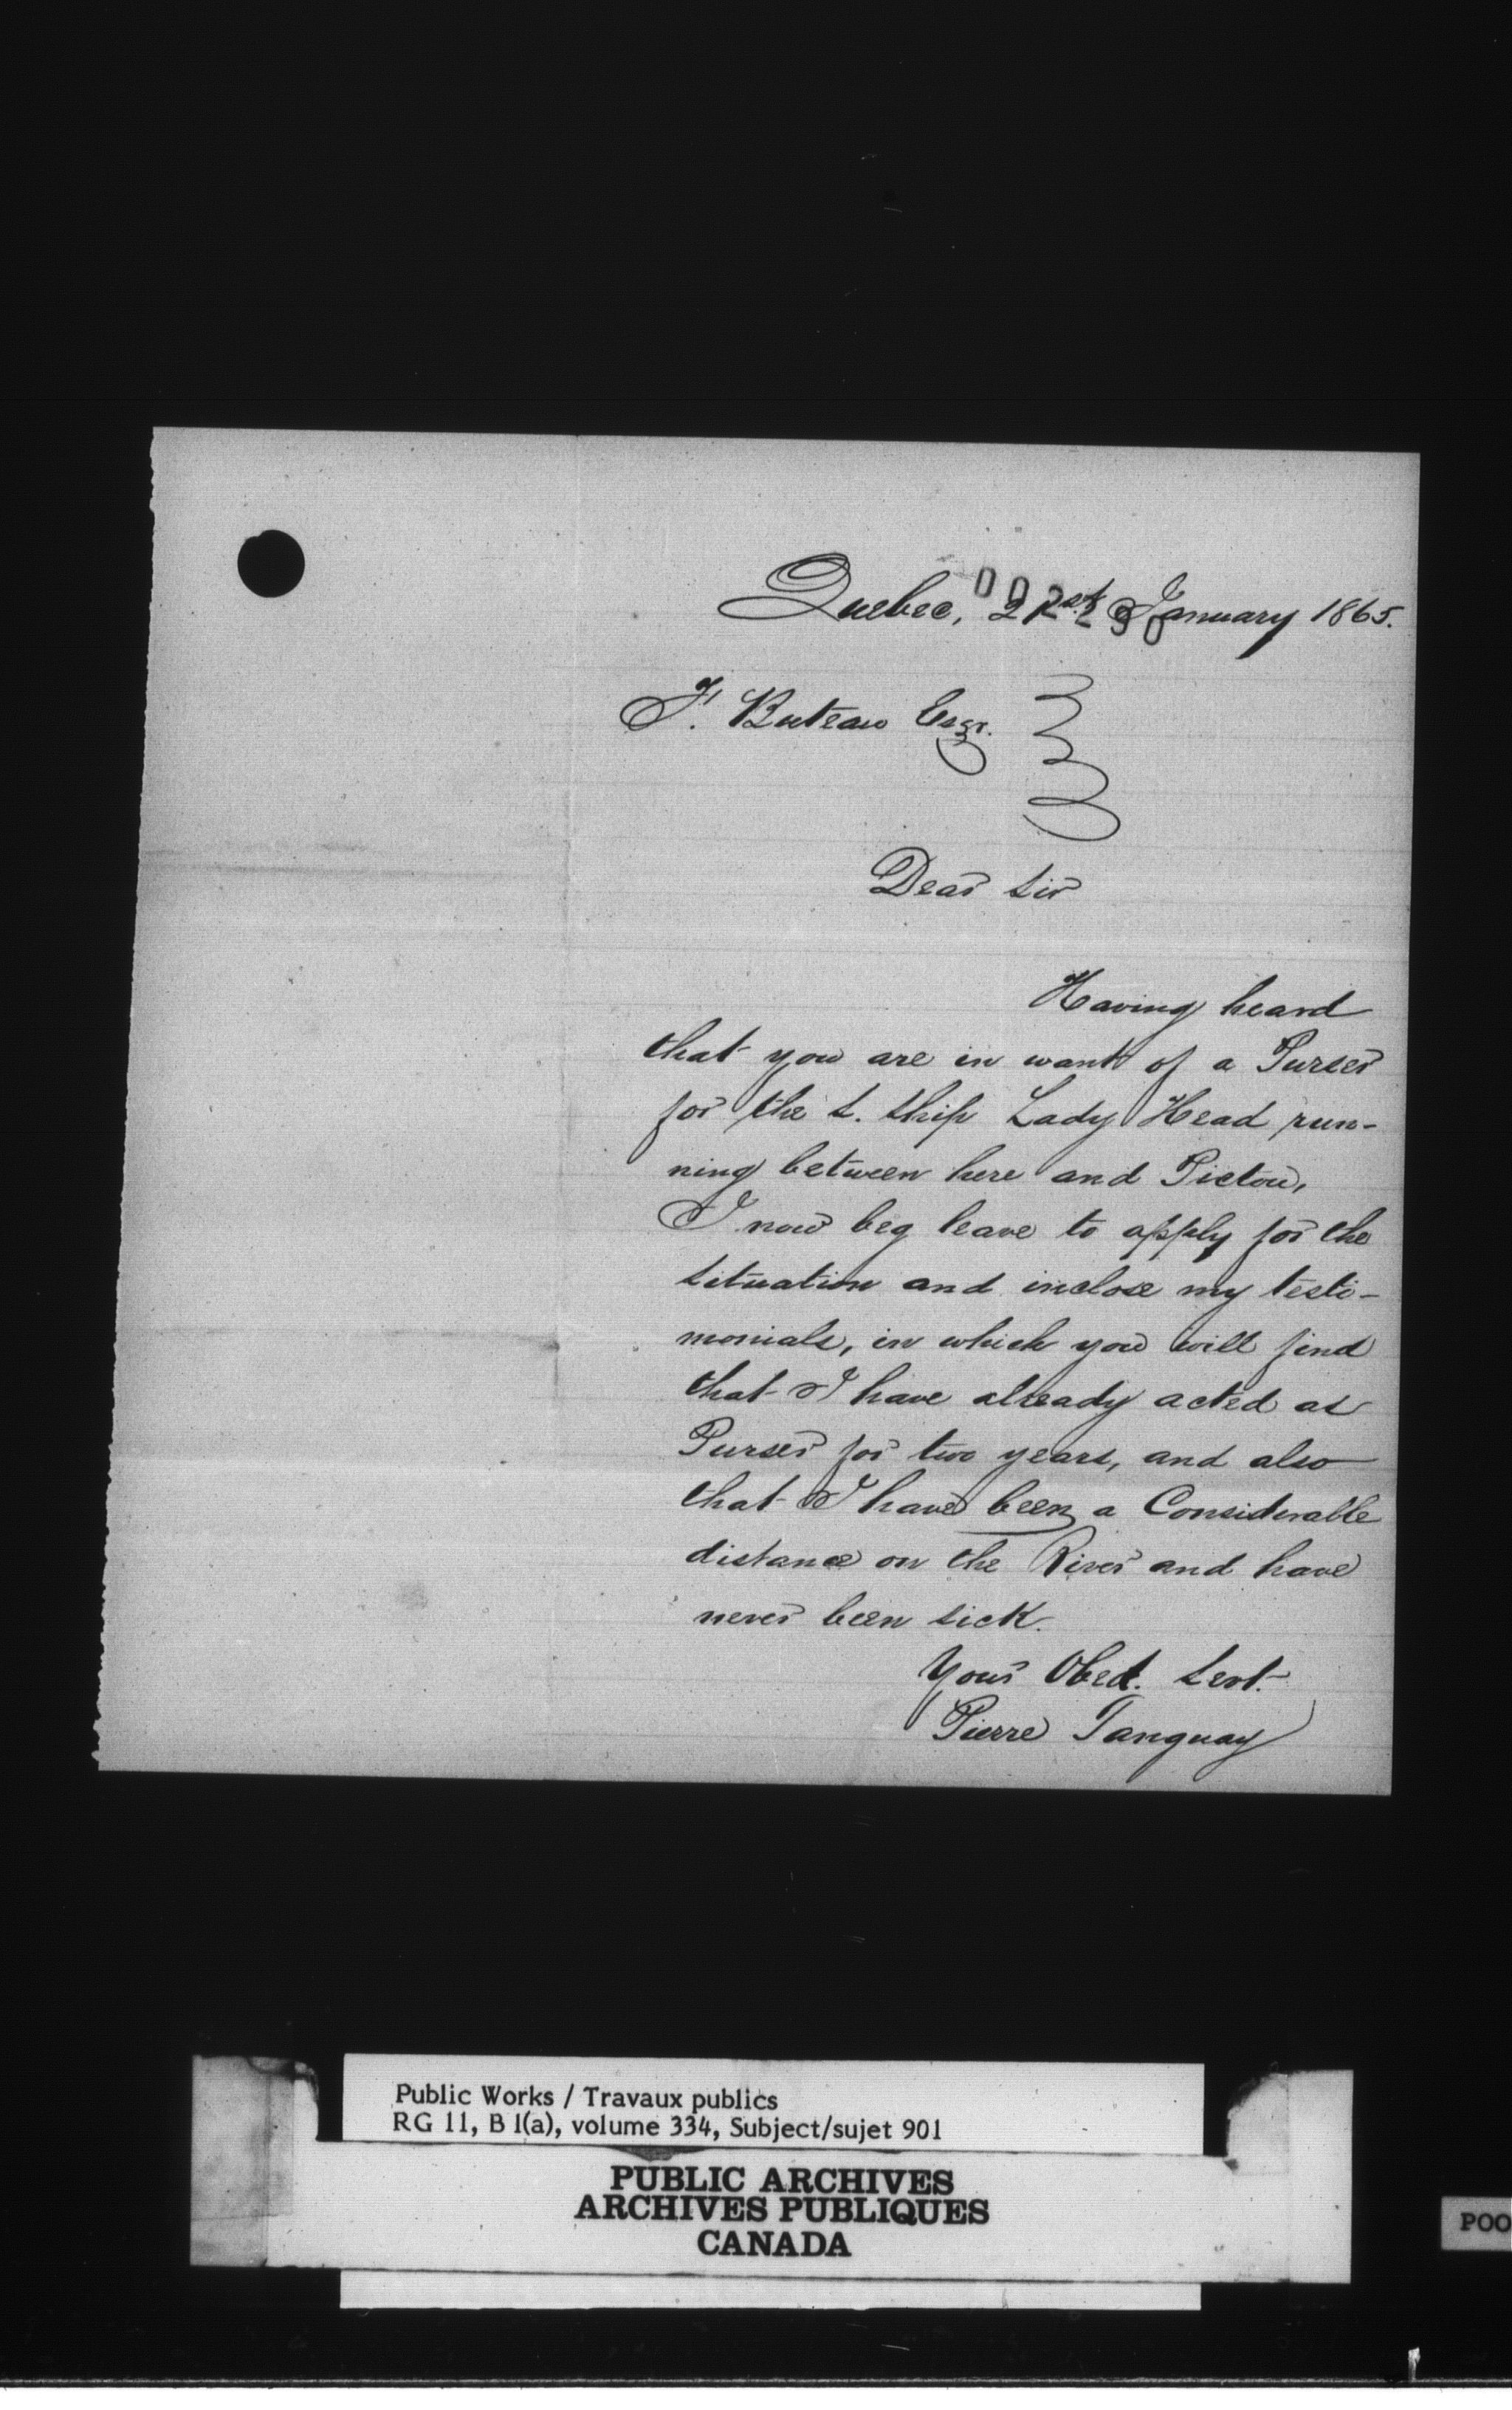 Quebec, 21st January 1865.
F. Buteau Esqr.
Dear Sir
Having heard
that you are in want of a Purser
for the S. Ship Lady Head run-
ning between here and Pictou,
I now beg leave to apply for the
situation and inclose my testi-
monials, in which you will find
that I have already acted as
Purser for two years, and also
that I have been a Considerable
distance on the River and have
never been sick.
Your Obed. Servt.
Pierre Tanguay
Public Works / Travaux publics
RG 11, B 1(a), volume 334, Subject/sujet 901
PUBLIC ARCHIVES
ARCHIVES PUBLIQUES
CANADA
POO